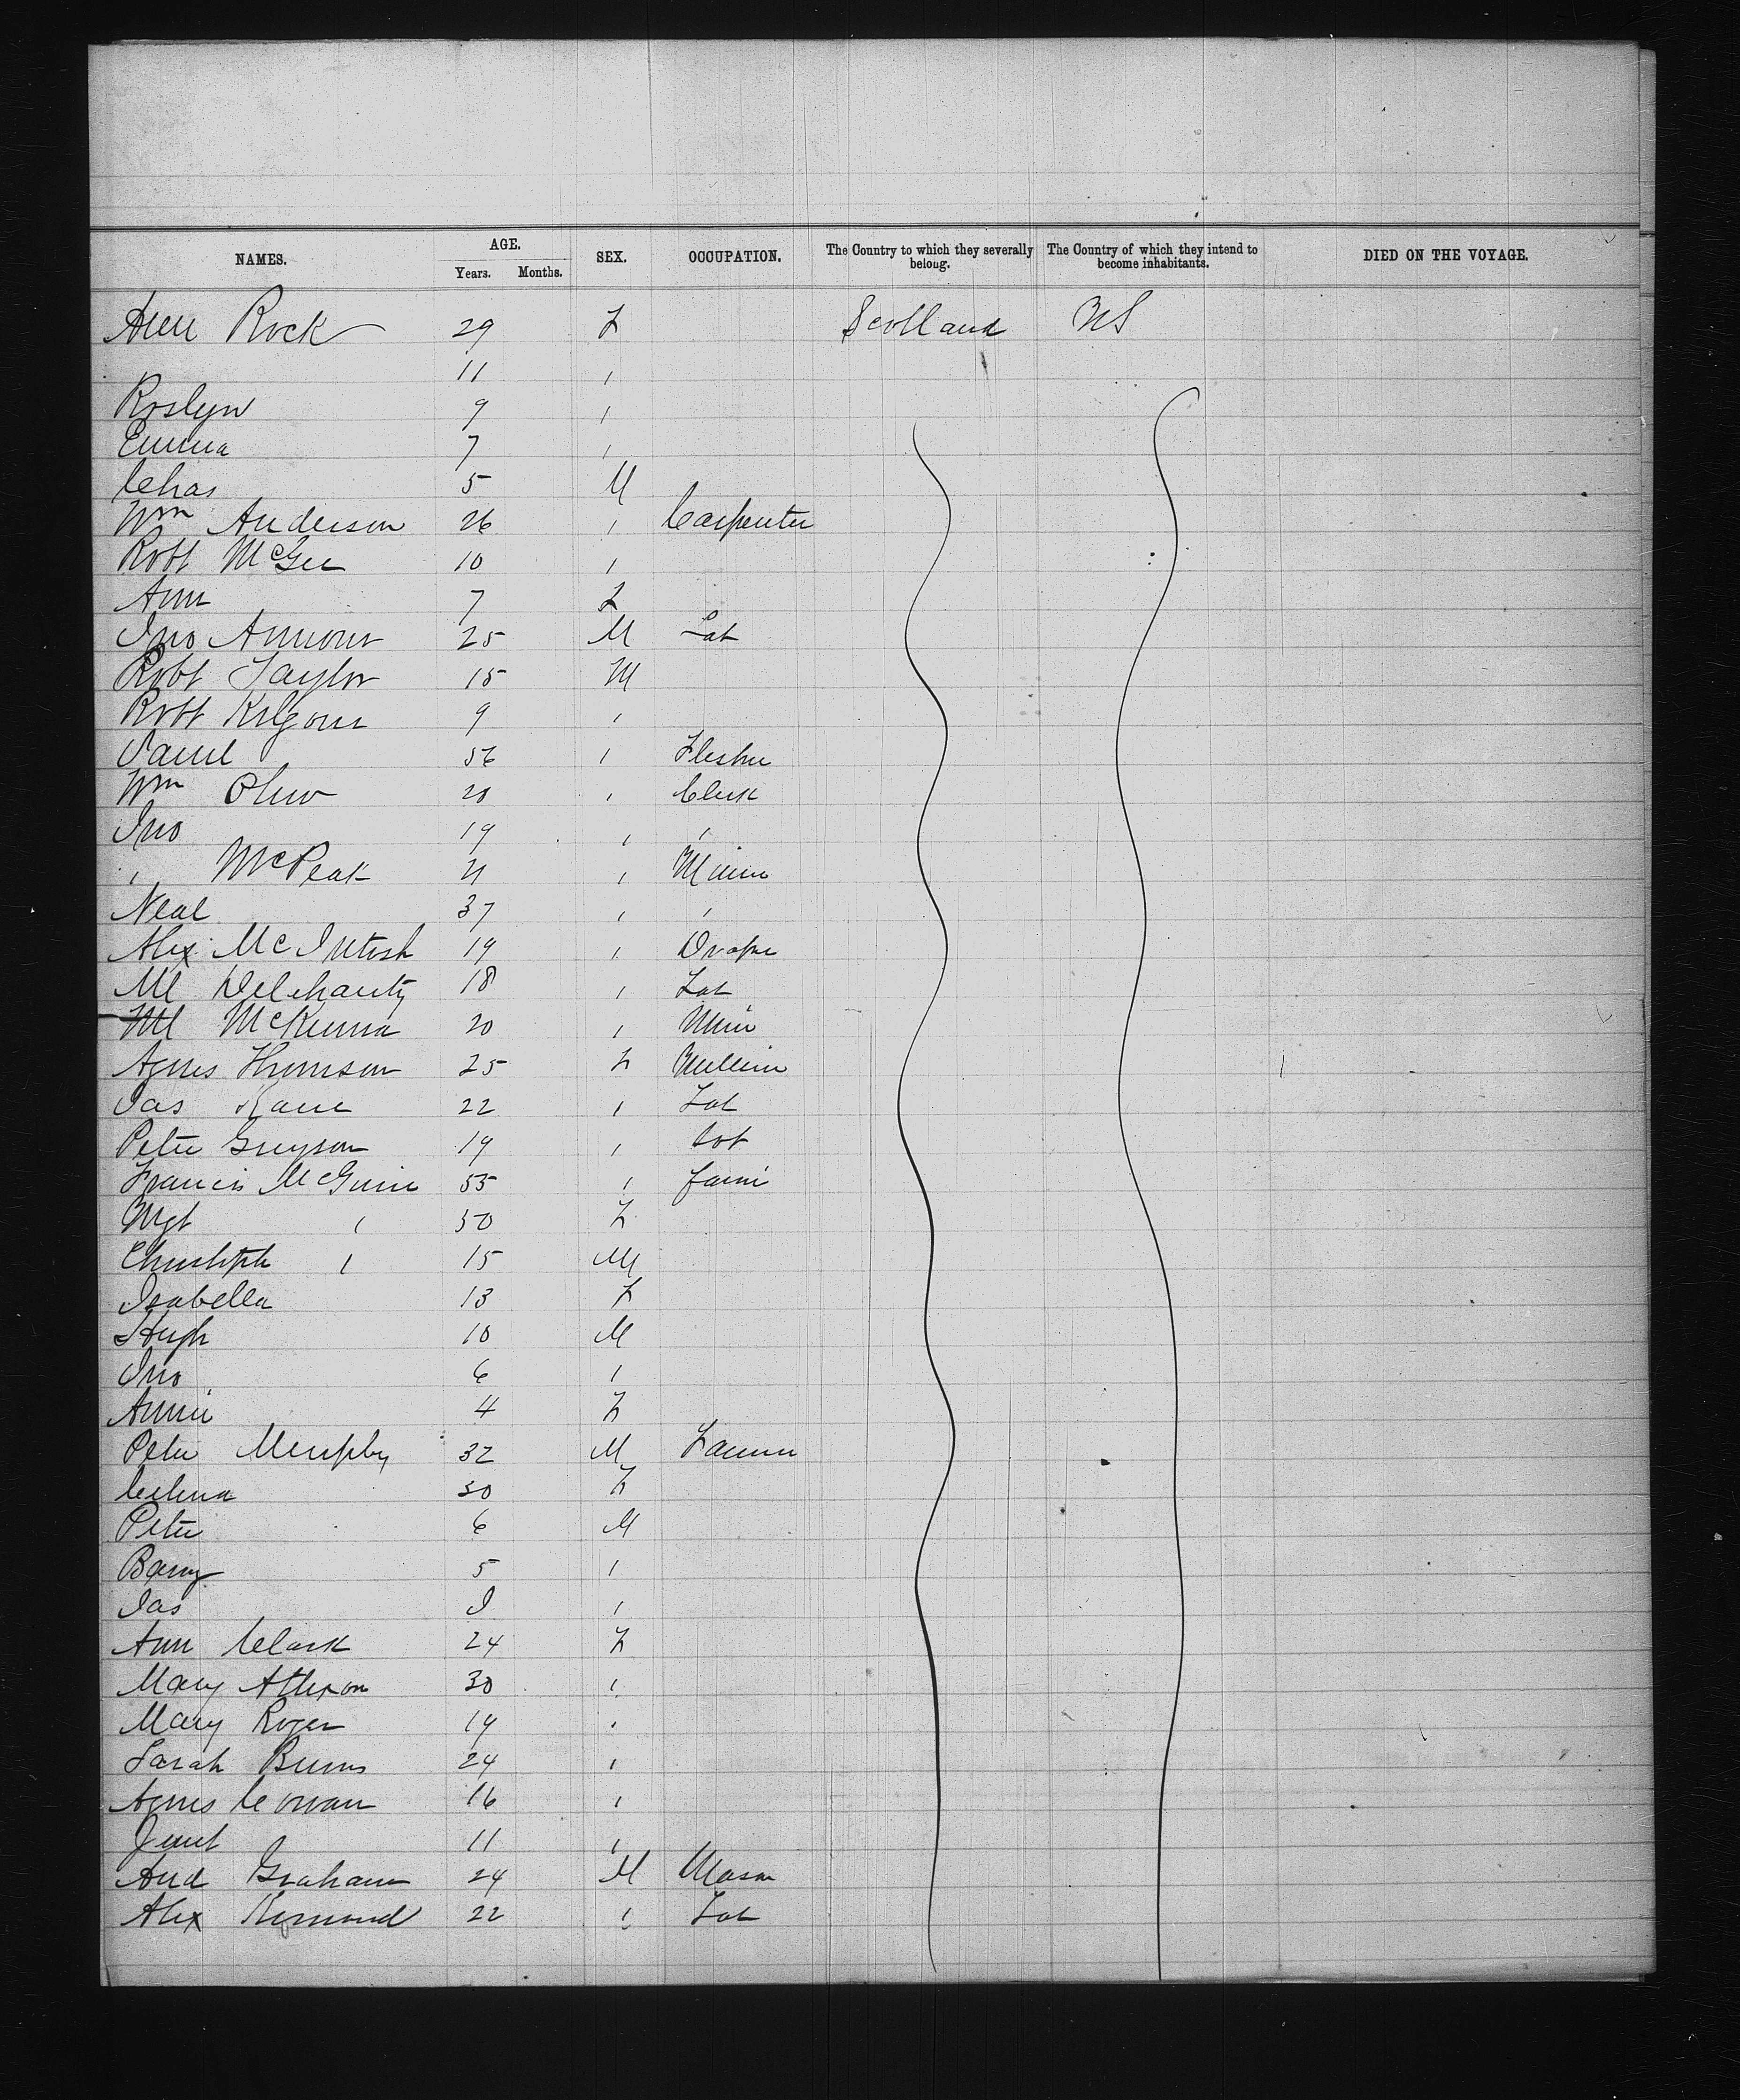 NAMES. AGE. Years. Months. SEX. OCCUPATION. The Country to which they severally belong. The Country of which they intend to become inhabitants. DIED ON THE VOYAGE.
Ann Rock 29 F Scotland US
11 "
Roslyn 9 "
Emma 7 "
Chas 5 M
Wm Anderson 26 " Carpenter
Robt McGee 10 "
Ann 7 F
Jno Armour 25 M Lab
Robt Taylor 15 M
Robt Kilgour 9 "
Saml 56 " Flesher
Wm 20 " Clerk
Jno 19 " "
" McPeak 21 " Miner
Neal 37 " "
Alex McIntosh 19 " Drape
Ml Delehanty 18 " Lab
Ml McKenna 20 " Min
Agnes Thomson 25 F Milliner
Jas Kane 22 " Lab
Peter Greyson 19 "
Francis McGuire 55 " farm
Mgt " 50 F
Christoph " 15 M
Isabella 13 F
Hugh 10 M
Jno 6 "
Annie 4 F
Peter Murphy 32 M Farmer
30 F
Peter 6 M
Barny 5 "
Jas "
Ann Clark 24 F
Mary 30 "
Mary Roger 19 "
Sarah Burns 24 "
Agnes Cowan 16 "
Janet 11 "
And Graham 24 M Mason
Alex 22 " Lab